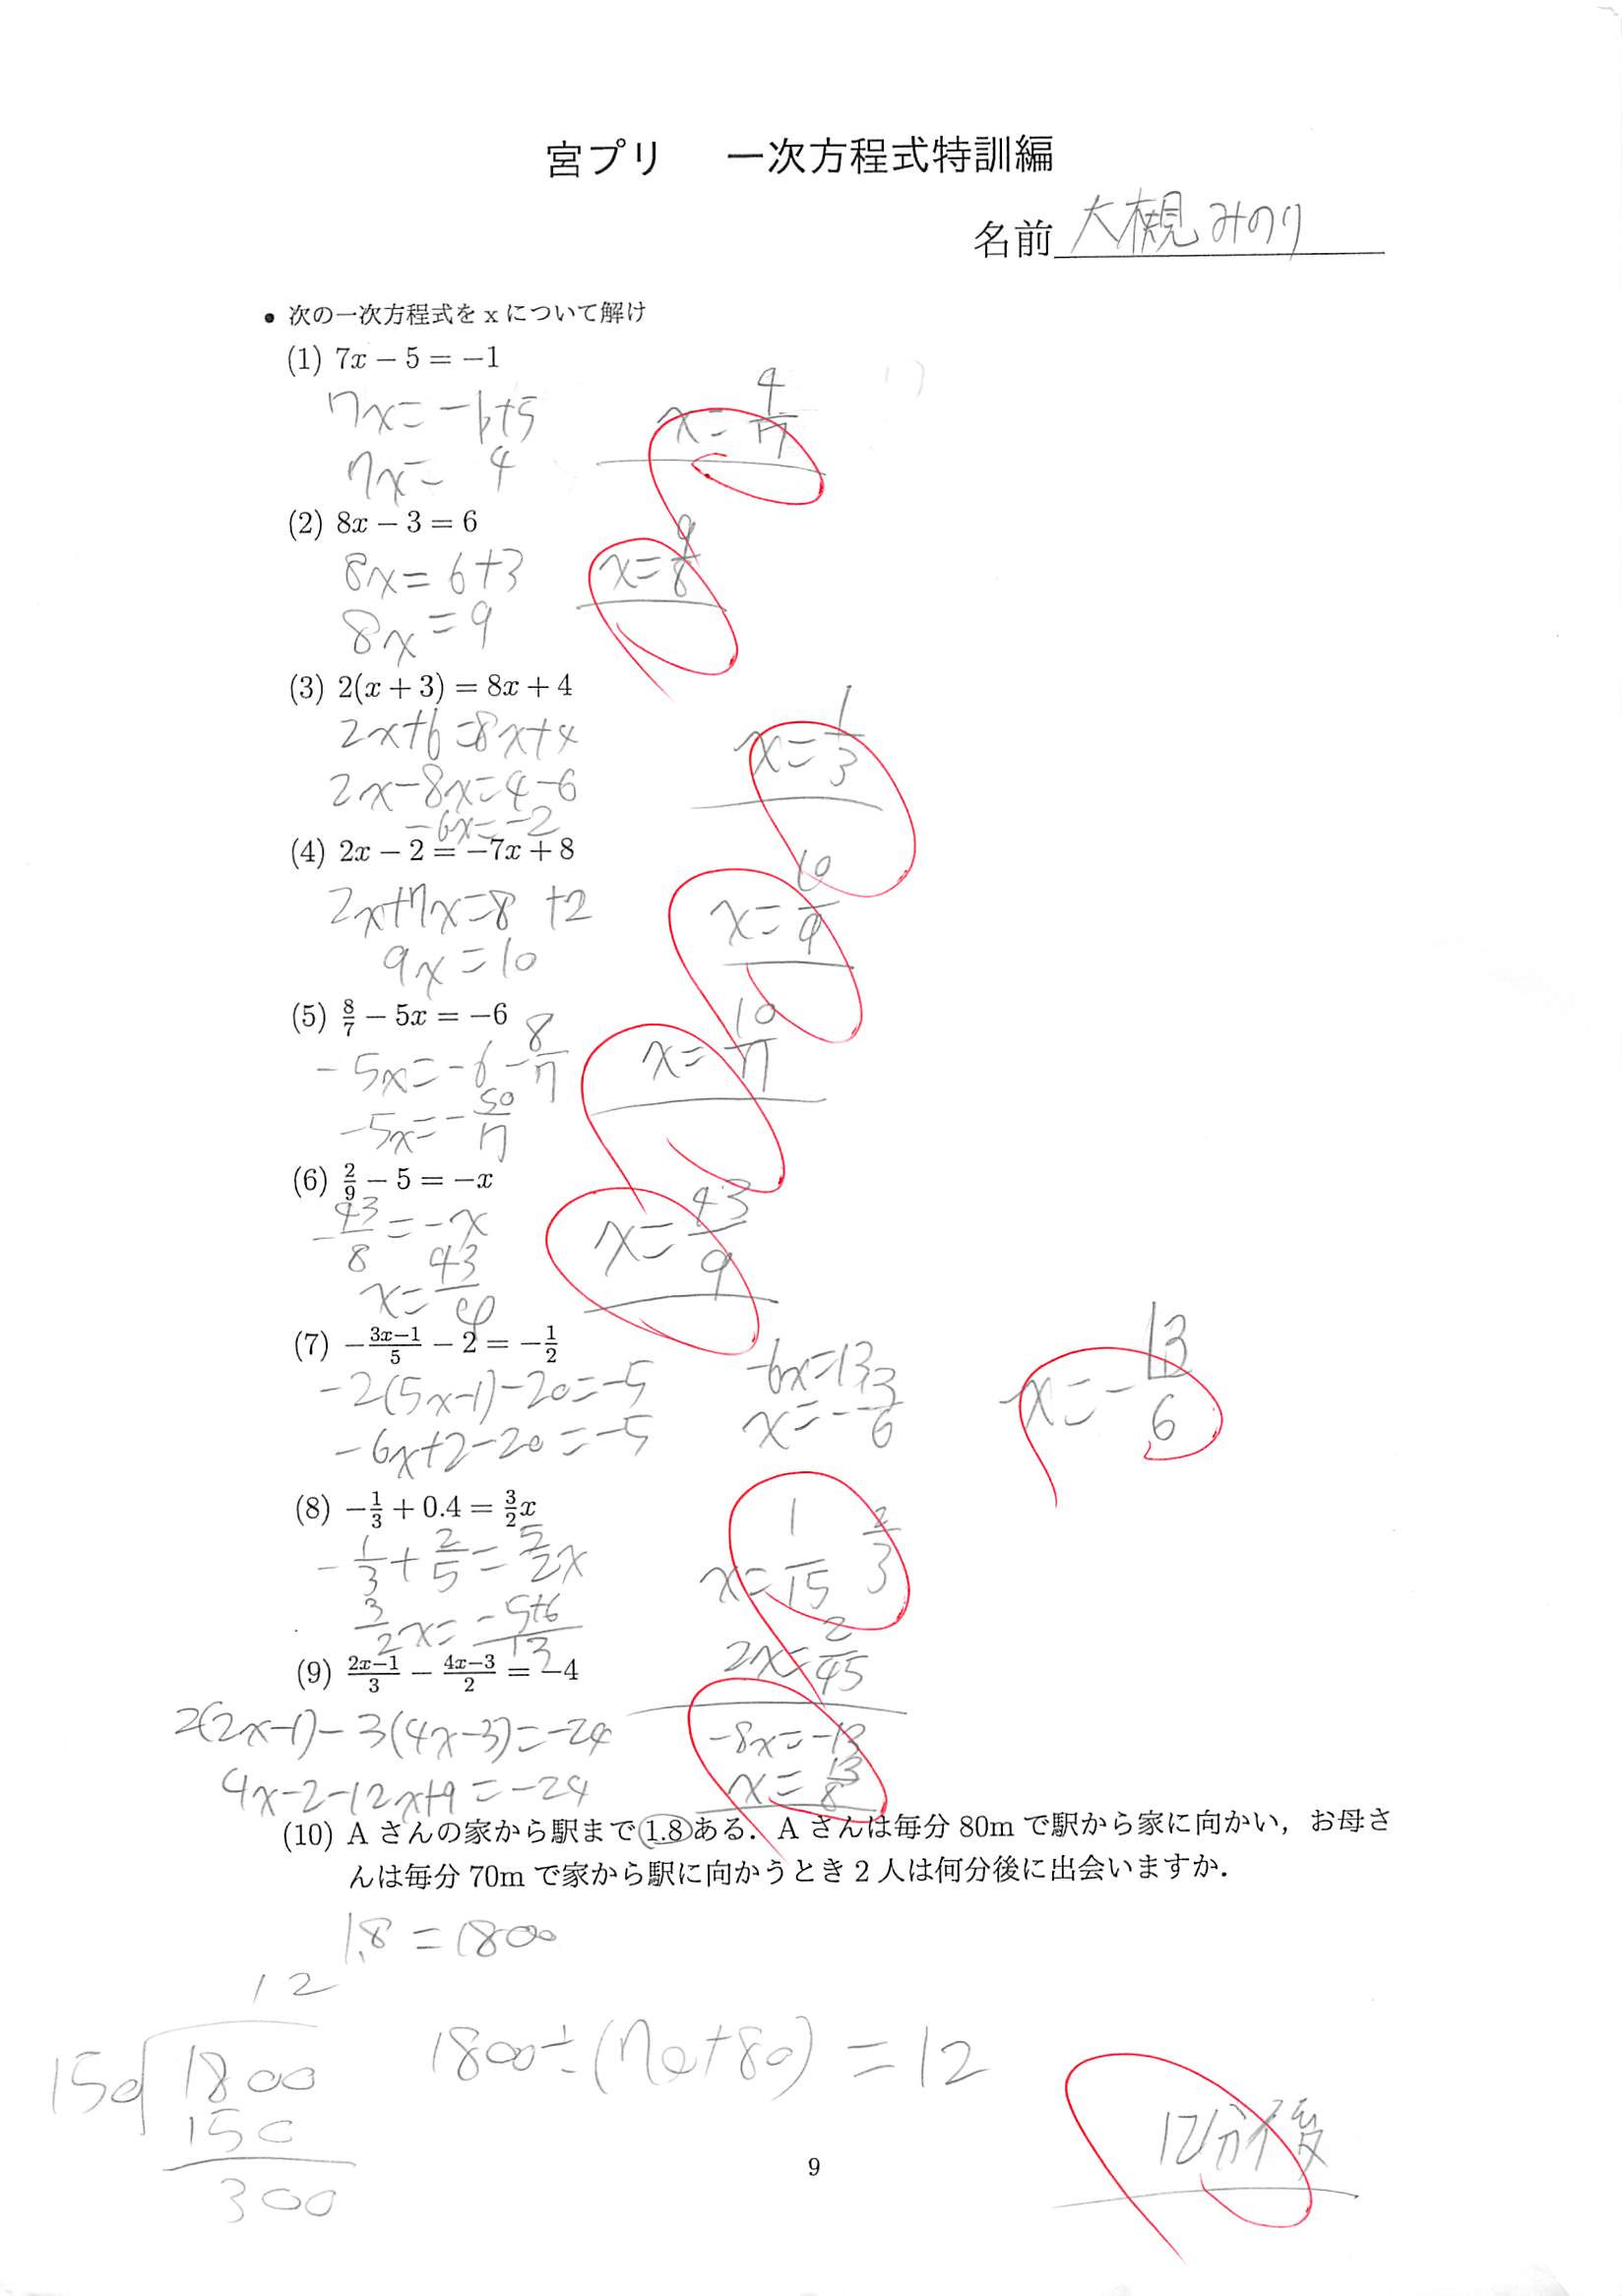 宮プリ 一次方程式特訓編
名前 大槻みのり
• 次の一次方程式を x について解け
(1) 7x − 5 = −1
7x = −1+5
7x = 4
x = 4/7
(2) 8x − 3 = 6
8x = 6+3
8x = 9
x = 9/8
(3) 2(x + 3) = 8x + 4
2x+6 = 8x+4
2x−8x = 4−6
−6x = −2
x = 1/3
(4) 2x − 2 = −7x + 8
2x+7x = 8 +2
9x = 10
x = 10/9
(5) 8/7 − 5x = −6
−5x = −6 − 8/7
−5x = − 50/7
x = 10/7
(6) 2/9 − 5 = −x
− 43/8 = −x
x = 43/9
x = 43/9
(7) − (3x−1)/5 − 2 = − 1/2
−2(5x−1)−20 = −5
−6x+2−20 = −5
−6x = 13
x = − 13/6
x = − 13/6
(8) − 1/3 + 0.4 = 3/2 x
− 1/3 + 2/5 = 3/2 x
3/2 x = (−5+6)/15
x = 1/15 2/3
2x = 2/45
(9) (2x−1)/3 − (4x−3)/2 = −4
2(2x−1)−3(4x−3) = −24
4x−2−12x+9 = −24
−8x = −13
x = 13/8
(10) A さんの家から駅まで 1.8 ある．A さんは毎分 80m で駅から家に向かい，お母さ
んは毎分 70m で家から駅に向かうとき 2 人は何分後に出会いますか．
1.8 = 1800
12
150 1800
150
300
1800÷(70+80) = 12
12分後
9